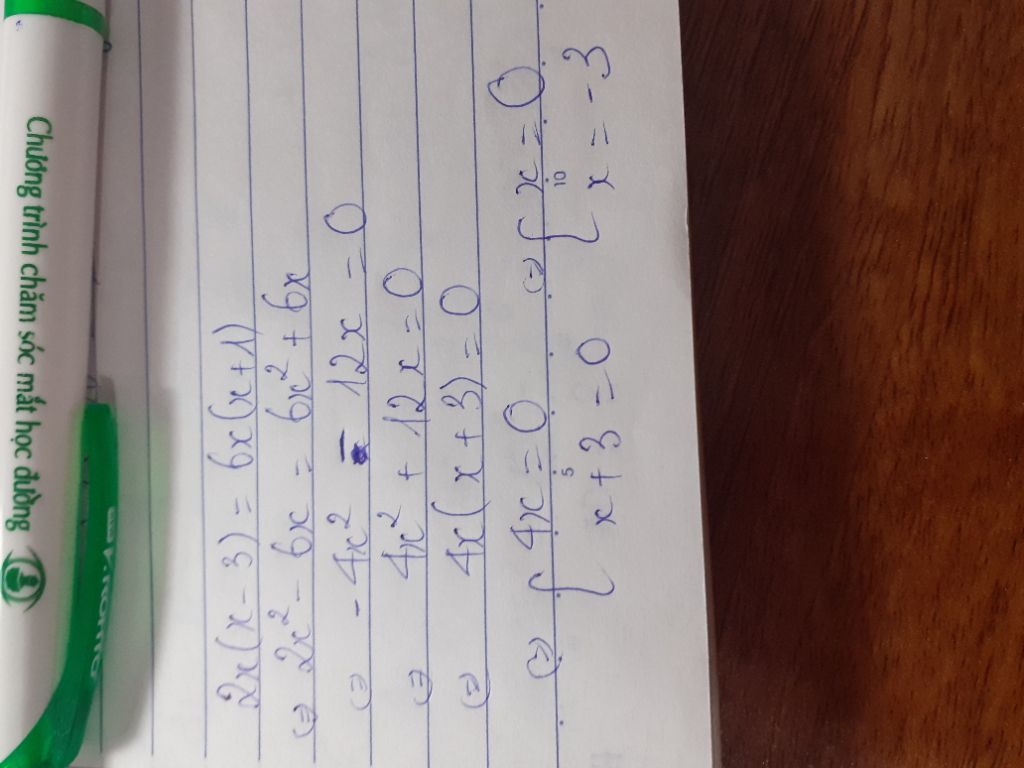 Chương trình chăm sóc mắt học đường
2x(x - 3) = 6x(x + 1)
(=) 2x² - 6x = 6x² + 6x
(=) - 4x² - 12x = 0
(=) 4x² + 12x = 0
(=) 4x(x + 3) = 0
(=) { 4x = 0 (=) { x = 0
x + 3 = 0 x = -3
5 10